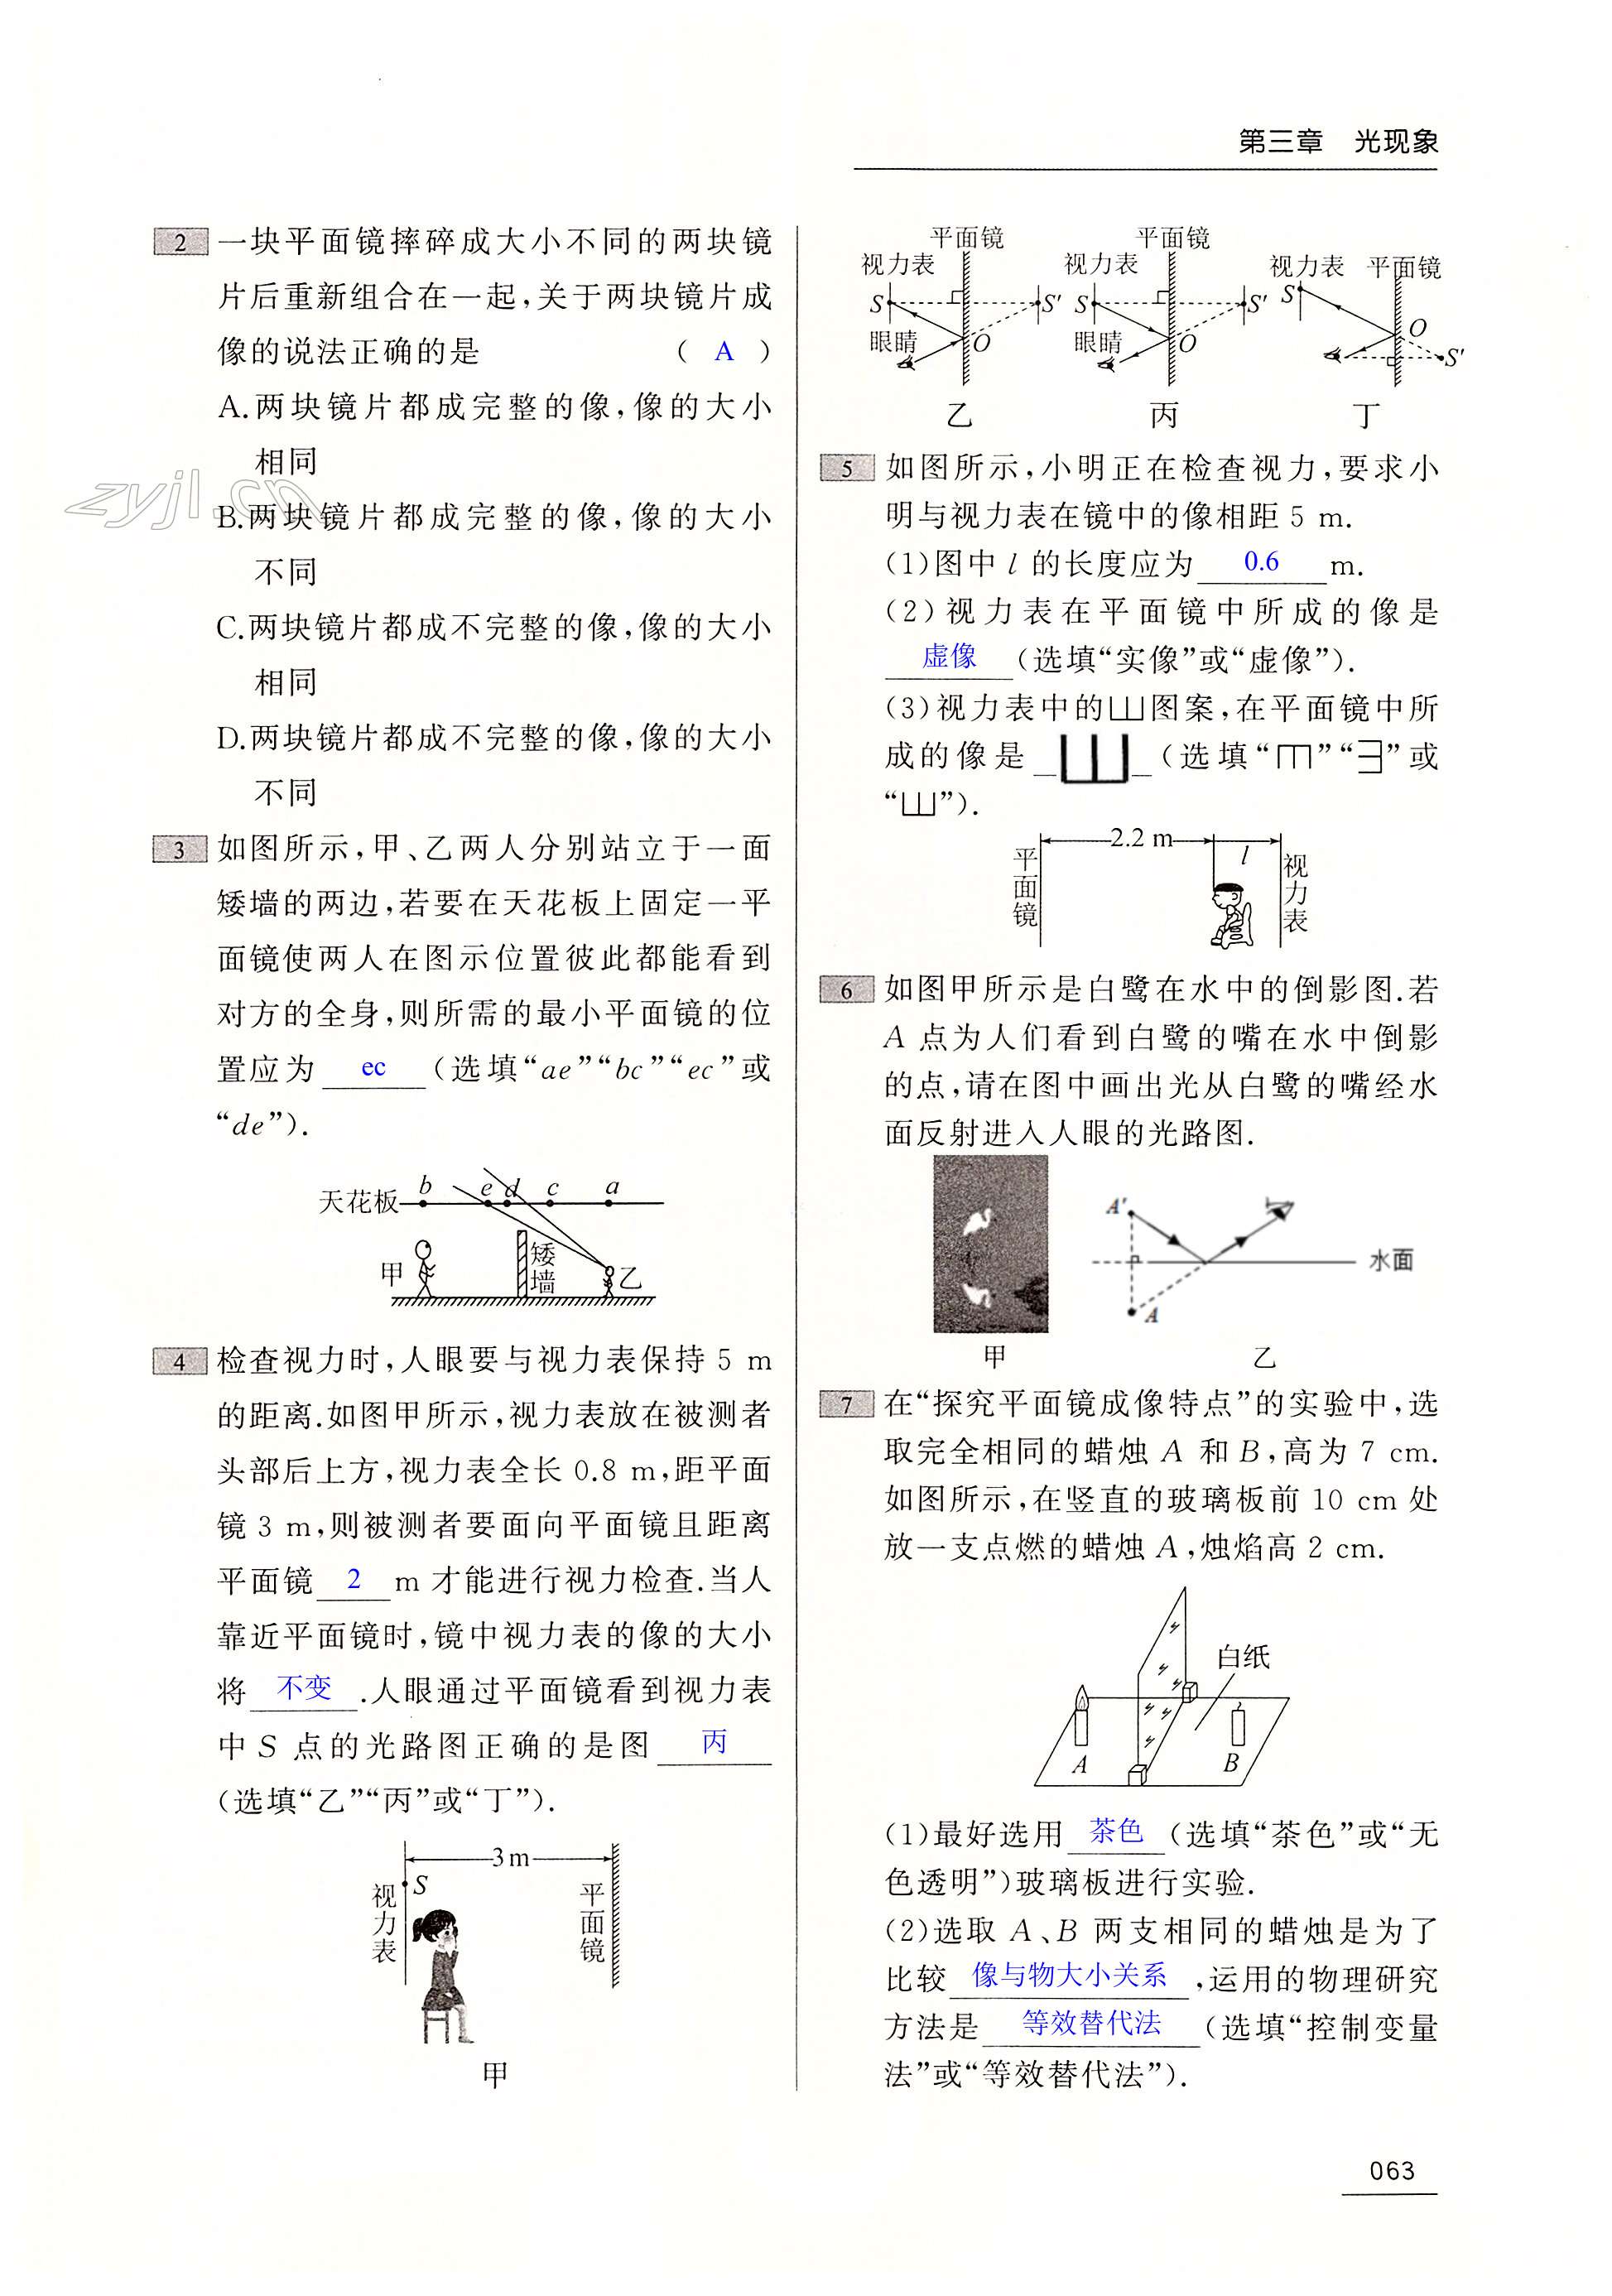 第三章 光现象
2 一块平面镜摔碎成大小不同的两块镜
片后重新组合在一起,关于两块镜片成
像的说法正确的是 ( A )
A.两块镜片都成完整的像,像的大小
相同
zyjl.cn
B.两块镜片都成完整的像,像的大小
不同
C.两块镜片都成不完整的像,像的大小
相同
D.两块镜片都成不完整的像,像的大小
不同
3 如图所示,甲、乙两人分别站立于一面
矮墙的两边,若要在天花板上固定一平
面镜使两人在图示位置彼此都能看到
对方的全身,则所需的最小平面镜的位
置应为 ec (选填“ae”“bc”“ec”或
“de”).
天花板 b e d c a
甲 矮墙 乙
4 检查视力时,人眼要与视力表保持 5 m
的距离.如图甲所示,视力表放在被测者
头部后上方,视力表全长 0.8 m,距平面
镜 3 m,则被测者要面向平面镜且距离
平面镜 2 m 才能进行视力检查.当人
靠近平面镜时,镜中视力表的像的大小
将 不变 .人眼通过平面镜看到视力表
中 S 点的光路图正确的是图 丙
(选填“乙”“丙”或“丁”).
3 m
S
视力表 平面镜
甲
平面镜 平面镜
视力表 视力表 视力表 平面镜
S S' S S' S
眼睛 O 眼睛 O O S'
乙 丙 丁
5 如图所示,小明正在检查视力,要求小
明与视力表在镜中的像相距 5 m.
(1)图中 l 的长度应为 0.6 m.
(2)视力表在平面镜中所成的像是
虚像 (选填“实像”或“虚像”).
(3)视力表中的山图案,在平面镜中所
成的像是 山 (选填“m”“ヨ”或
“山”).
2.2 m l
平面镜 视力表
6 如图甲所示是白鹭在水中的倒影图.若
A 点为人们看到白鹭的嘴在水中倒影
的点,请在图中画出光从白鹭的嘴经水
面反射进入人眼的光路图.
A'
水面
A
甲 乙
7 在“探究平面镜成像特点”的实验中,选
取完全相同的蜡烛 A 和 B,高为 7 cm.
如图所示,在竖直的玻璃板前 10 cm 处
放一支点燃的蜡烛 A,烛焰高 2 cm.
白纸
A B
(1)最好选用 茶色 (选填“茶色”或“无
色透明”)玻璃板进行实验.
(2)选取 A、B 两支相同的蜡烛是为了
比较 像与物大小关系 ,运用的物理研究
方法是 等效替代法 (选填“控制变量
法”或“等效替代法”).
063